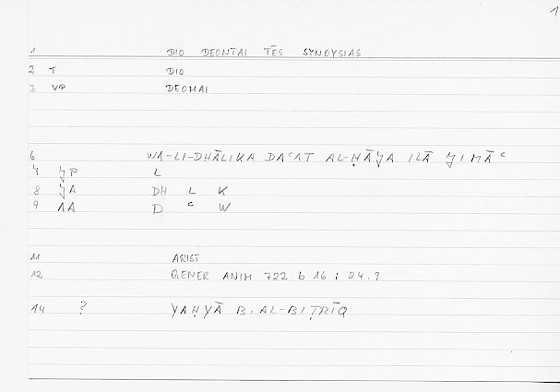 1
1 DIO DEONTAI TĒS SYNOYSIAS
2 T DIO
3 VP DEOMAI
6 WA-LI-DHĀLIKA DAᶜAT AL-ḤĀǦA ILĀ ǦIMĀᶜ
7 ǦP L
8 ǦA DH L K
9 AA D ᶜ W
11 ARIST
12 GENER ANIM 722 b 16 ; 24.9
14 ? YAḤYĀ B. AL-BIṬRĪQ